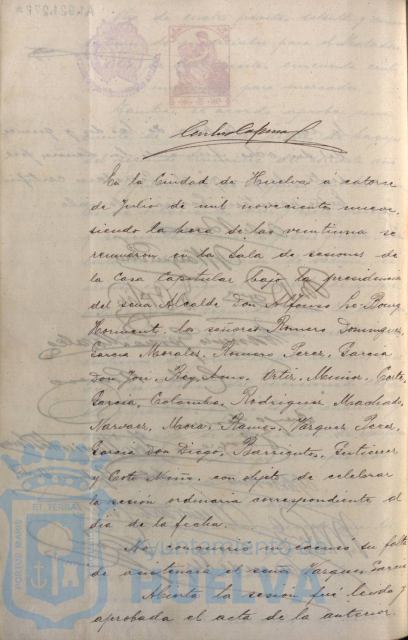 A1.921.277
En la Ciudad de Huelva á catorce
de Julio de mil novecientos nueve,
siendo la hora de las veintiuna se
reunieron en la Sala de sesiones de
la Casa Capitular bajo la presidencia
del señor Alcalde Don Alfonso Le-Bourg
Norment, los señores Romero, Dominguez,
Garcia Morales, Romero Perez, Garcia
Don José, Rey, Ortiz, Muñoz, Corte,
Garcia, Colombo, Rodriguez Machado,
Narvaez, Mora, Ramos, Vazquez Perez,
Garcia Don Diego, Barrientos, Gutierrez
y Coto Niño, con objeto de celebrar
la sesión ordinaria correspondiente al
dia de la fecha.
No concurrió ni excusó su falta
de asistencia el señor Vazquez
Abierta la sesión fué leida y
aprobada el acta de la anterior.
PORTUS MARIS
ET TERRAE
Ayuntamiento de
HUELVA